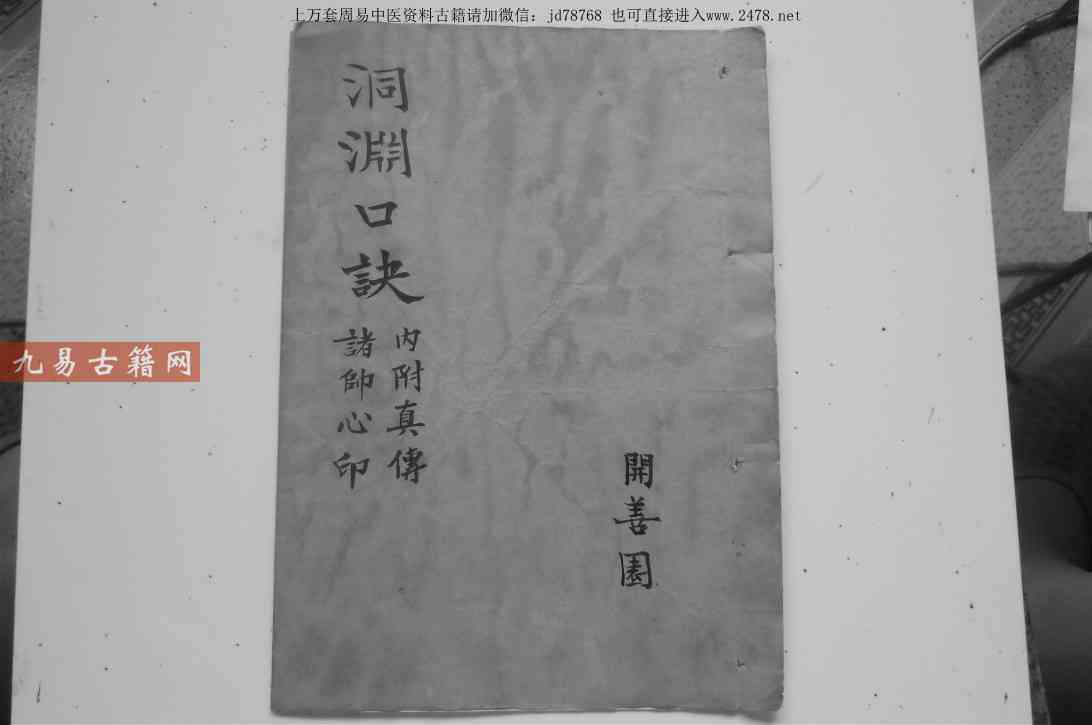 上万套周易中医资料古籍请加微信：jd78768 也可直接进入www.2478.net
開善園
洞淵口訣
內附真傳
諸師心印
九易古籍网